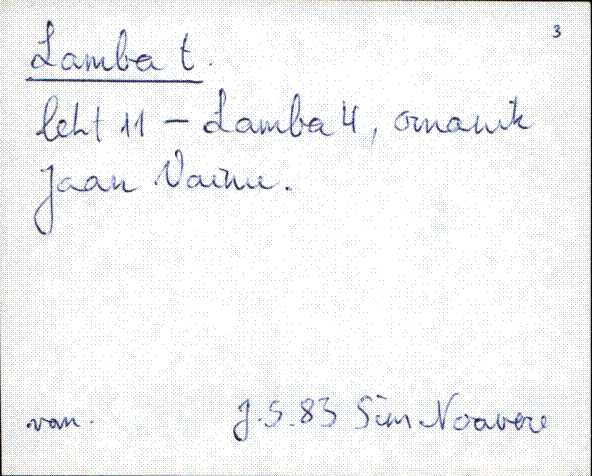 3
Lamba t.
leht 11 – Lamba 4, omanik
Jaan Vainu.
van. J.S.83 Siim Noavere